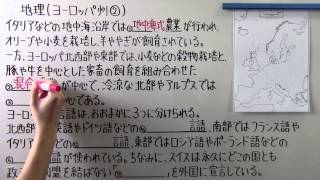 地理(ヨーロッパ州②)
イタリアなどの地中海沿岸では◎地中海式農業が行われ、
オリーブや小麦を栽培し、羊ややぎが飼育されている。
一方、ヨーロッパ北西部や東部では、小麦などの穀物栽培と、
豚や牛を中心とした家畜の飼育を組み合わせた
◎混合が中心で、冷涼な北部やアルプスでは
中心である。
ヨーロッパ言語は、おおまかに3つに分けられる。
北西部 英語やドイツ語などの◎言語、南部ではフランス語や
イタリア 言語、東部ではロシア語やポーランド語などの
言語が使われている。ちなみに、スイスは永久にどこの国とも
政治 同盟を結ばない◎を外国に宣言している。